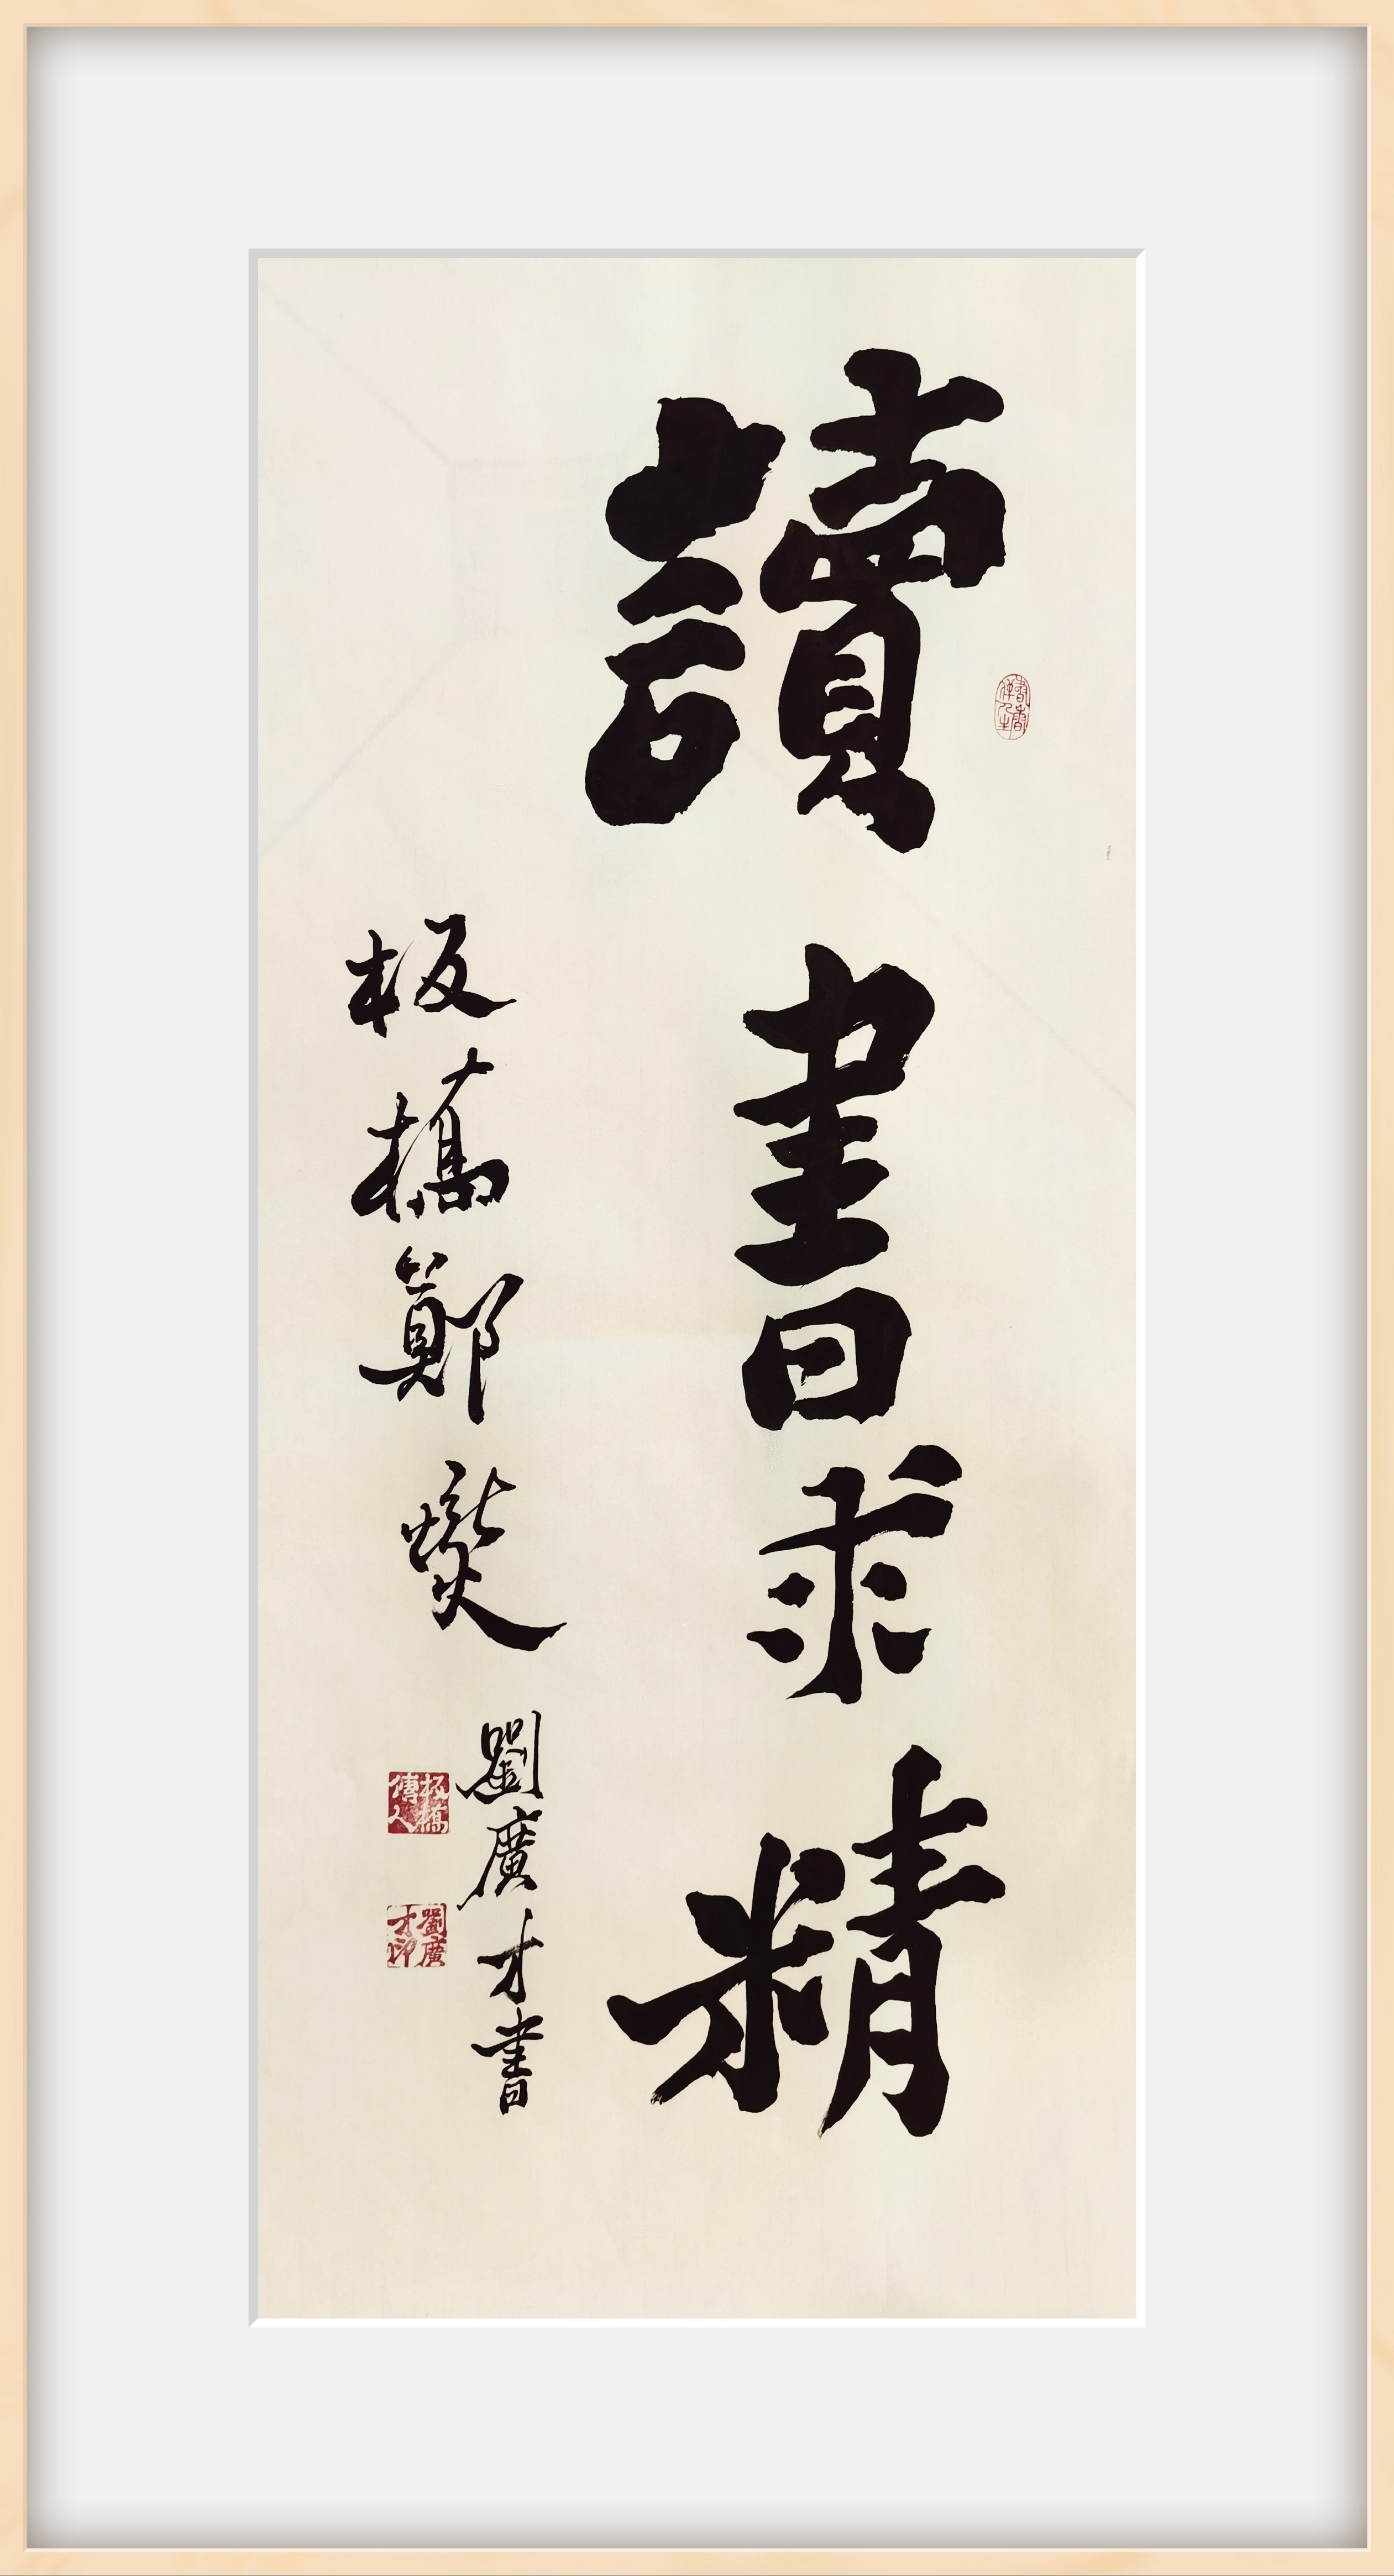 讀書求精
板橋鄭燮
劉廣才書
書香
伴人生
板橋
傳人
劉廣
才印